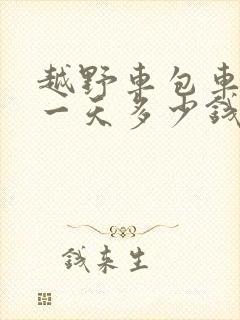 越野車包車
一天多少錢
錢來生